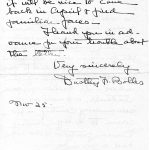 it will be nice to come
back in April & find
familiar faces —
Thank you in ad-
vance for your trouble about
the
Very sincerely
Dudley F. Bolles
Nov 25